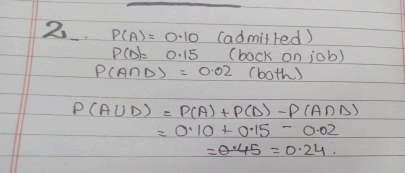 2. P(A) = 0.10 (admitted)
P(D) = 0.15 (back on job)
P(A∩D) = 0.02 (both)
P(A∪D) = P(A) + P(D) - P(A∩D)
= 0.10 + 0.15 - 0.02
= 0.45 = 0.24.